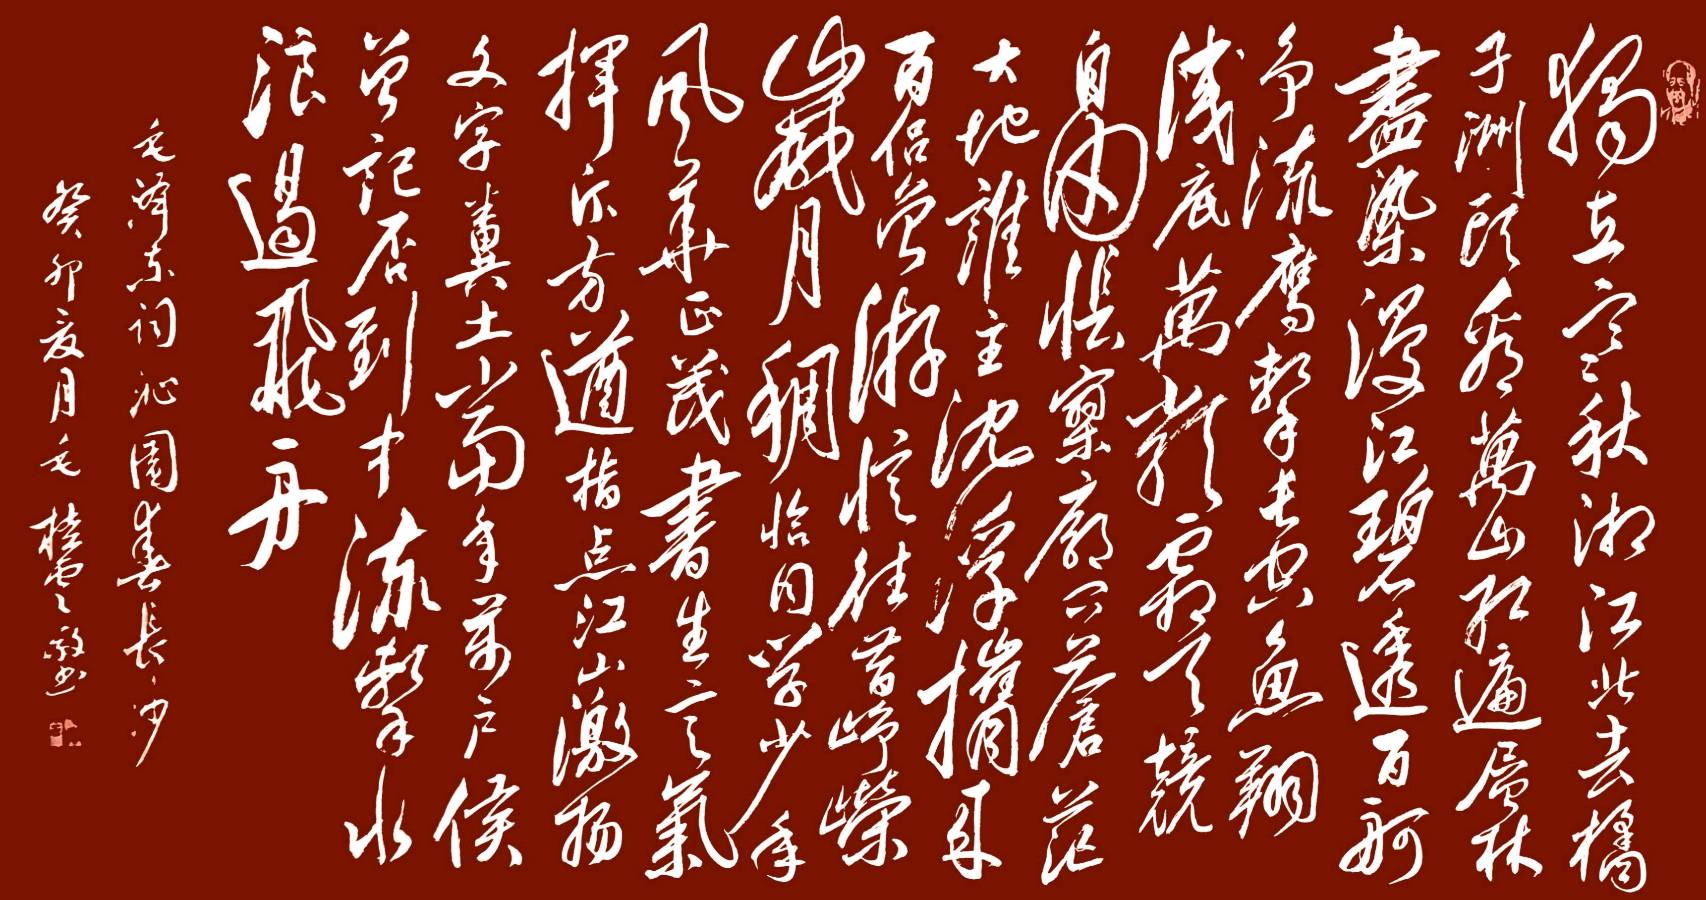 獨立寒秋湘江北去橘
子洲頭看萬山紅遍層林
盡染漫江碧透百舸
争流鷹擊長空魚翔
淺底萬類霜天競
自由悵寥廓問蒼茫
大地誰主沈浮攜來
百侣曾游憶往昔崢嶸
歲月稠恰同學少年
風華正茂書生意氣
揮斥方遒指点江山激扬
文字糞土當年萬户侯
曾記否到中流擊水
浪遏飛舟
毛澤东词沁園春長沙
癸卯夏月毛桂雲敬书